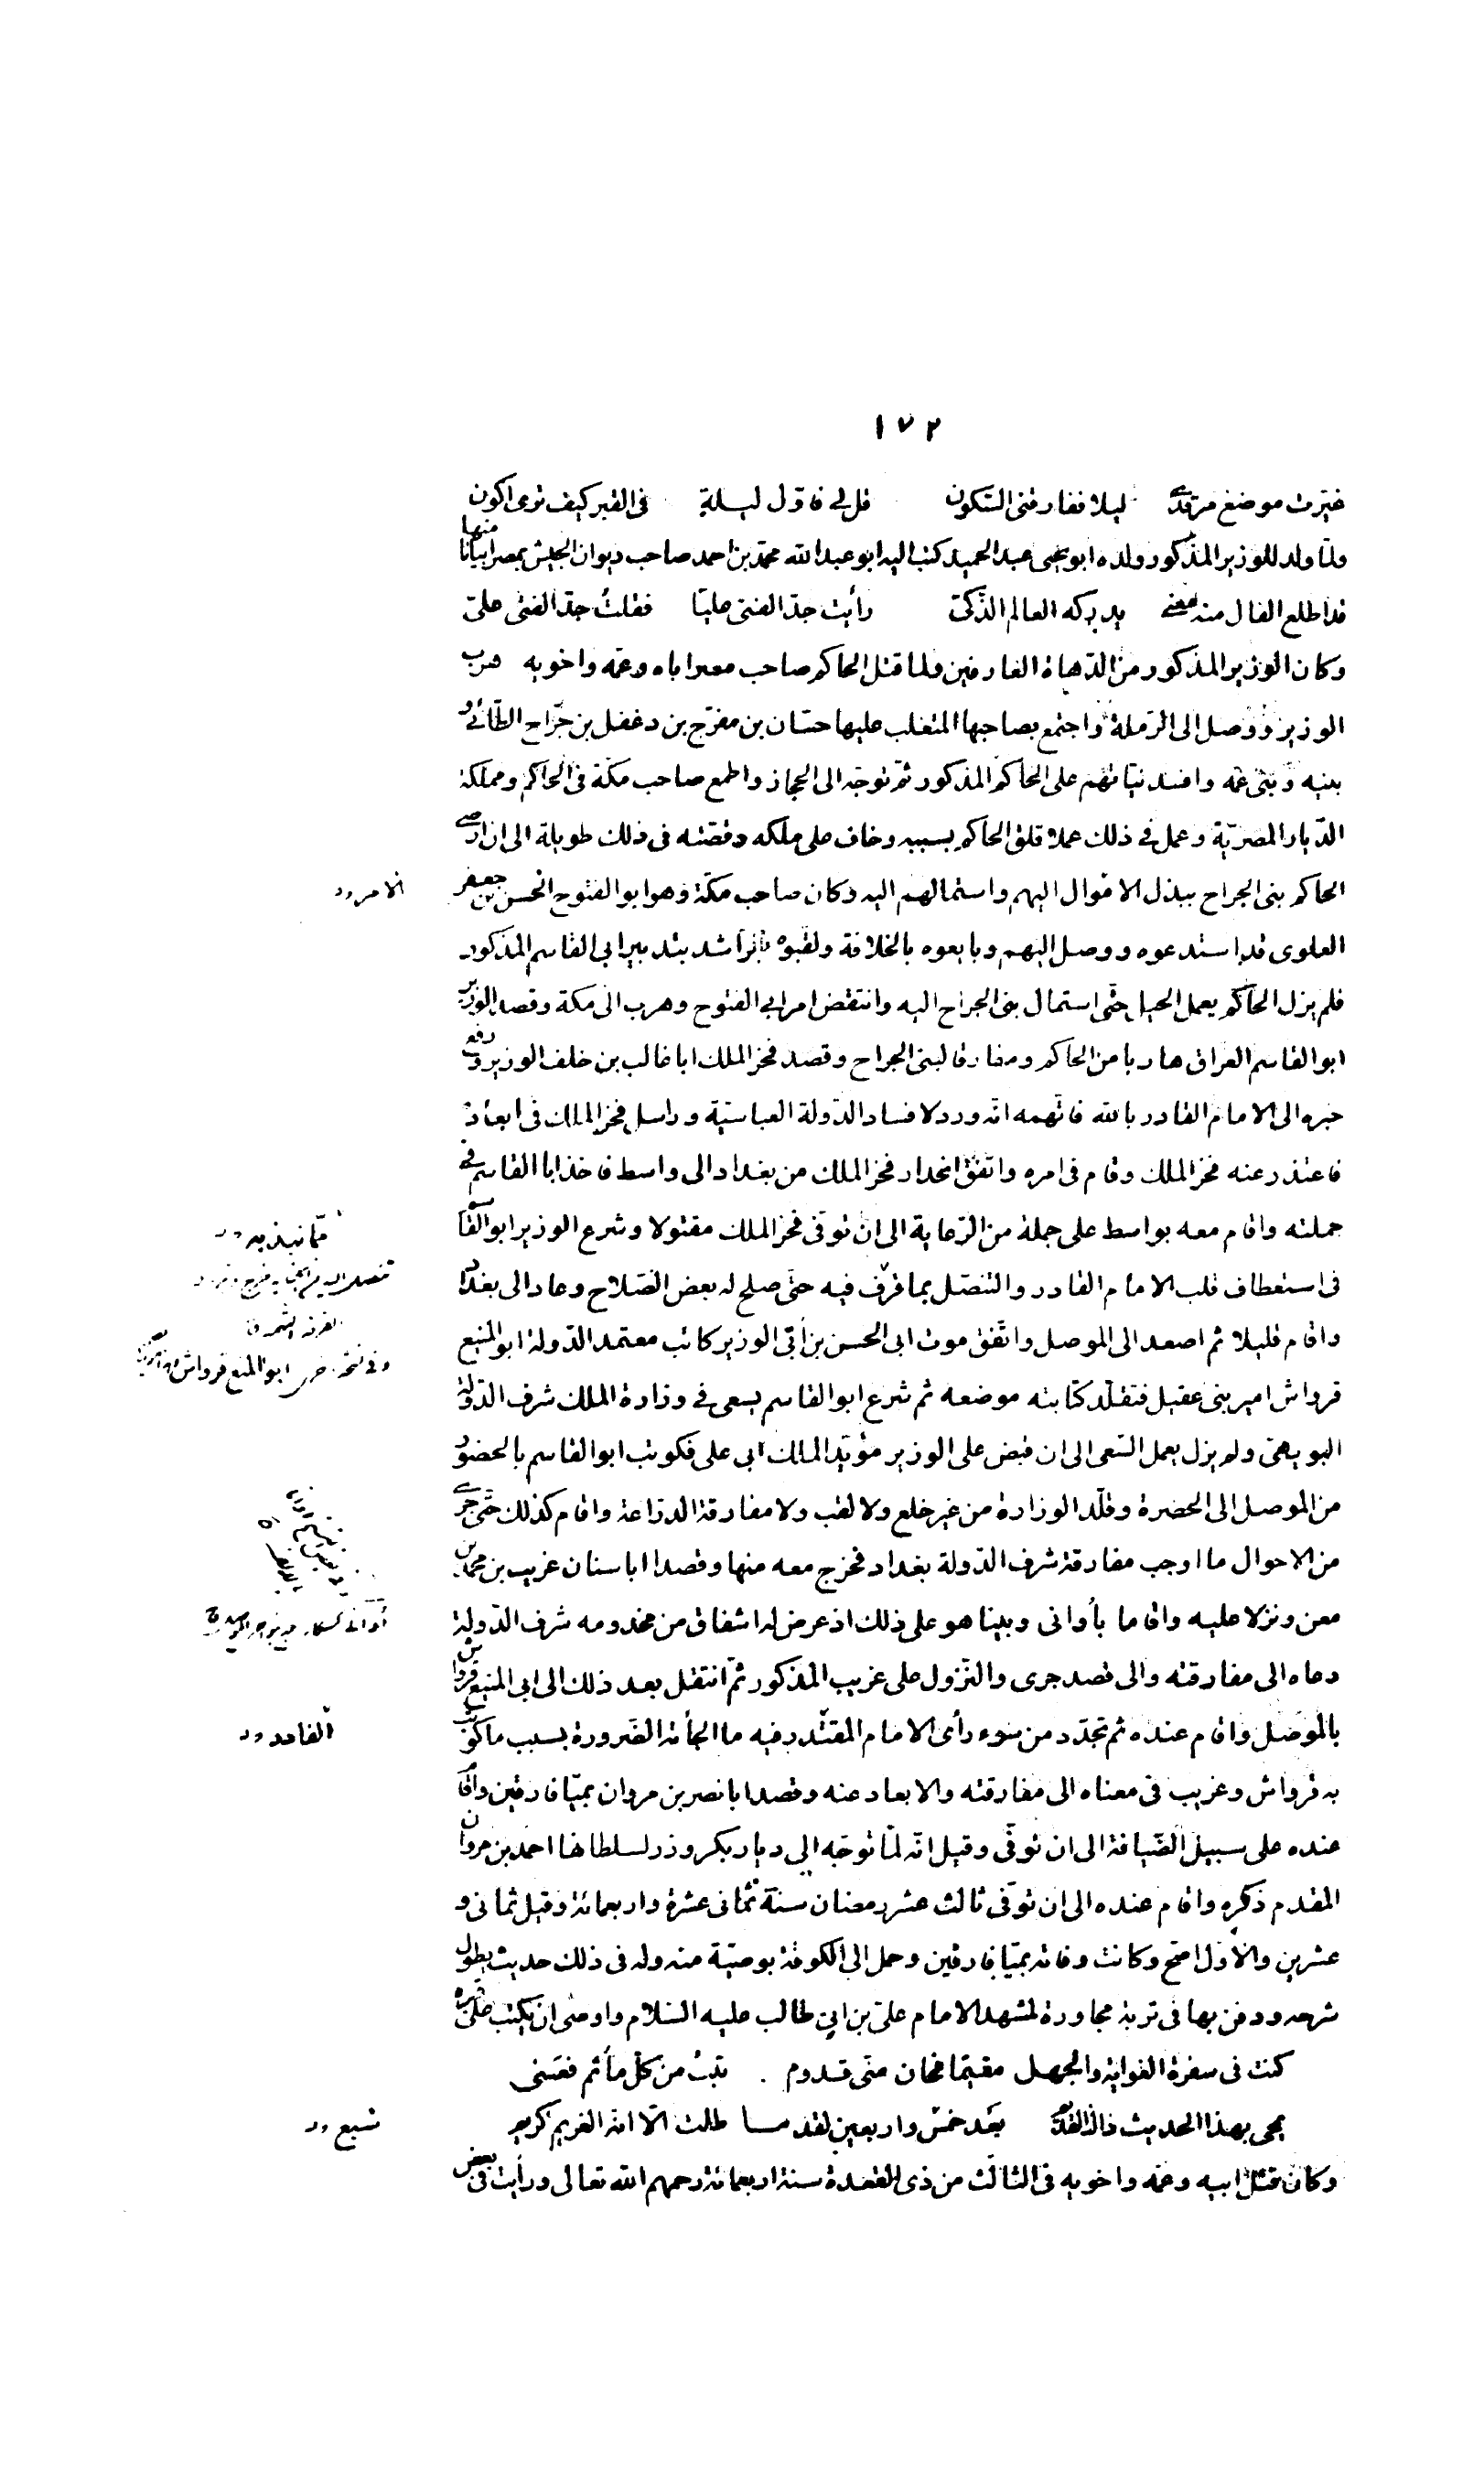 ١٧٢
غيرت موضع مرقدى ليلا ففارقنى السكون قل لى فاول ليلة فى القبر كيف ترى اكون
ولما ولد للوزير المذكور ولده ابو يحيى عبد الحميد كتب اليه ابو عبد الله محمد بن احمد صاحب ديوان الجيش بمصر ابياتا منها
قد اطلع الفال منه معنى يدركه العالم الذكى رأيت جد الفتى عليا فقلت جد الفتى على
وكان الوزير المذكور من الدهاة العارفين ولما قتل الحاكم صاحب مصر اباه وعمه واخويه هرب
الوزير ووصل الى الرملة واجتمع بصاحبها المتغلب عليها حسان بن مفرج بن دغفل بن جراح الطائى و
بنيه وبنى عمه وافسد نياتهم على الحاكم المذكور ثم توجه الى الحجاز واطمع صاحب مكة فى الحاكم ومملكة
الديار المصرية وعمل فى ذلك عملا قلق الحاكم بسببه وخاف على ملكه وقصته فى ذلك طويلة الى ان ارضى
الحاكم بنى الجراح ببذل الاموال اليهم واستمالهم اليه وكان صاحب مكة وهو ابو الفتوح الحسن بن جعفر
العلوى قد استدعوه ووصل اليهم وبايعوه بالخلافة ولقبوه بالراشد بتدبير ابى القاسم المذكور
فلم يزل الحاكم يعمل الحيل حتى استمال بنى الجراح اليه وانتقض امر ابى الفتوح وهرب الى مكة وقصد الوزير
ابو القاسم العراق هاربا من الحاكم ومفارقا لبنى الجراح وقصد فخر الملك ابا غالب بن خلف الوزير ورفع
خبره الى الامام القادر بالله فاتهمه انه ورد لافساد الدولة العباسية وراسل فخر الملك فى ابعاده
فاعتذر عنه فخر الملك وقام فى امره واتفق انحدار فخر الملك من بغداد الى واسط فاخذ ابا القاسم فى
جملته واقام معه بواسط على جملة من الرعاية الى ان توفى فخر الملك مقتولا وشرع الوزير ابو القاسم
فى استعطاف قلب الامام القادر والتنصل بما قرف فيه حتى صلح له بعض الصلاح وعاد الى بغداد
واقام قليلا ثم اصعد الى الموصل واتفق موت ابى الحسن بن ابى الوزير كاتب معتمد الدولة ابو المنيع
قرواش امير بنى عقيل فتقلد كتابته موضعه ثم شرع ابو القاسم يسعى فى وزارة الملك شرف الدولة
البويهى ولم يزل يعمل السعى الى ان قبض على الوزير مؤيد الملك ابى على فكوتب ابو القاسم بالحضور
من الموصل الى الحضرة وقلد الوزارة من غير خلع ولا لقب ولا مفارقة الدراعة واقام كذلك حتى جرى
من الاحوال ما اوجب مفارقة شرف الدولة بغداد فخرج معه منها وقصدا ابا سنان غريب بن محمد بن
معن ونزلا عليه واقاما بأوانى وبينا هو على ذلك اذ عرض له اشفاق من مخدومه شرف الدولة
دعاه الى مفارقته والى قصد جرى والنزول على غريب المذكور ثم انتقل بعد ذلك الى ابى المنيع قرواش
بالموصل واقام عنده ثم تجدد من سوء رأى الامام المقتدر فيه ما الجأته الضرورة بسبب ما كوتب
به قرواش وغريب فى معناه الى مفارقته والابعاد عنه وقصد ابا نصر بن مروان بميافارقين واقام
عنده على سبيل الضيافة الى ان توفى وقيل انه لما توجه الى ديار بكر وزر لسلطانها احمد بن مروان
المقدم ذكره واقام عنده الى ان توفى ثالث عشر رمضان سنة ثمانى عشرة واربعمائة وقيل ثمانى و
عشرين والاول اصح وكانت وفاته بميافارقين وحمل الى الكوفة بوصية منه وله فى ذلك حديث يطول
شرحه ودفن بها فى تربة مجاورة لمشهد الامام على بن ابى طالب عليه السلام واوصى ان يكتب على قبره
كنت فى سفرة الغواية والجهل مقيما فحان منى قدوم . تبت من كل مأثم فعسى
يمحى بهذا الحديث ذاك القديم بعد خمس واربعين لقد ما طلت الا ان الغريم كريم
وكان قتل ابيه وعمه واخويه فى الثالث من ذى القعدة سنة اربعمائة رحمهم الله تعالى ورأيت فى بعض
الامر ود
مما نبذ به
وفى نسخة ابو المنيع قرواش
القادر ود
تسع ود